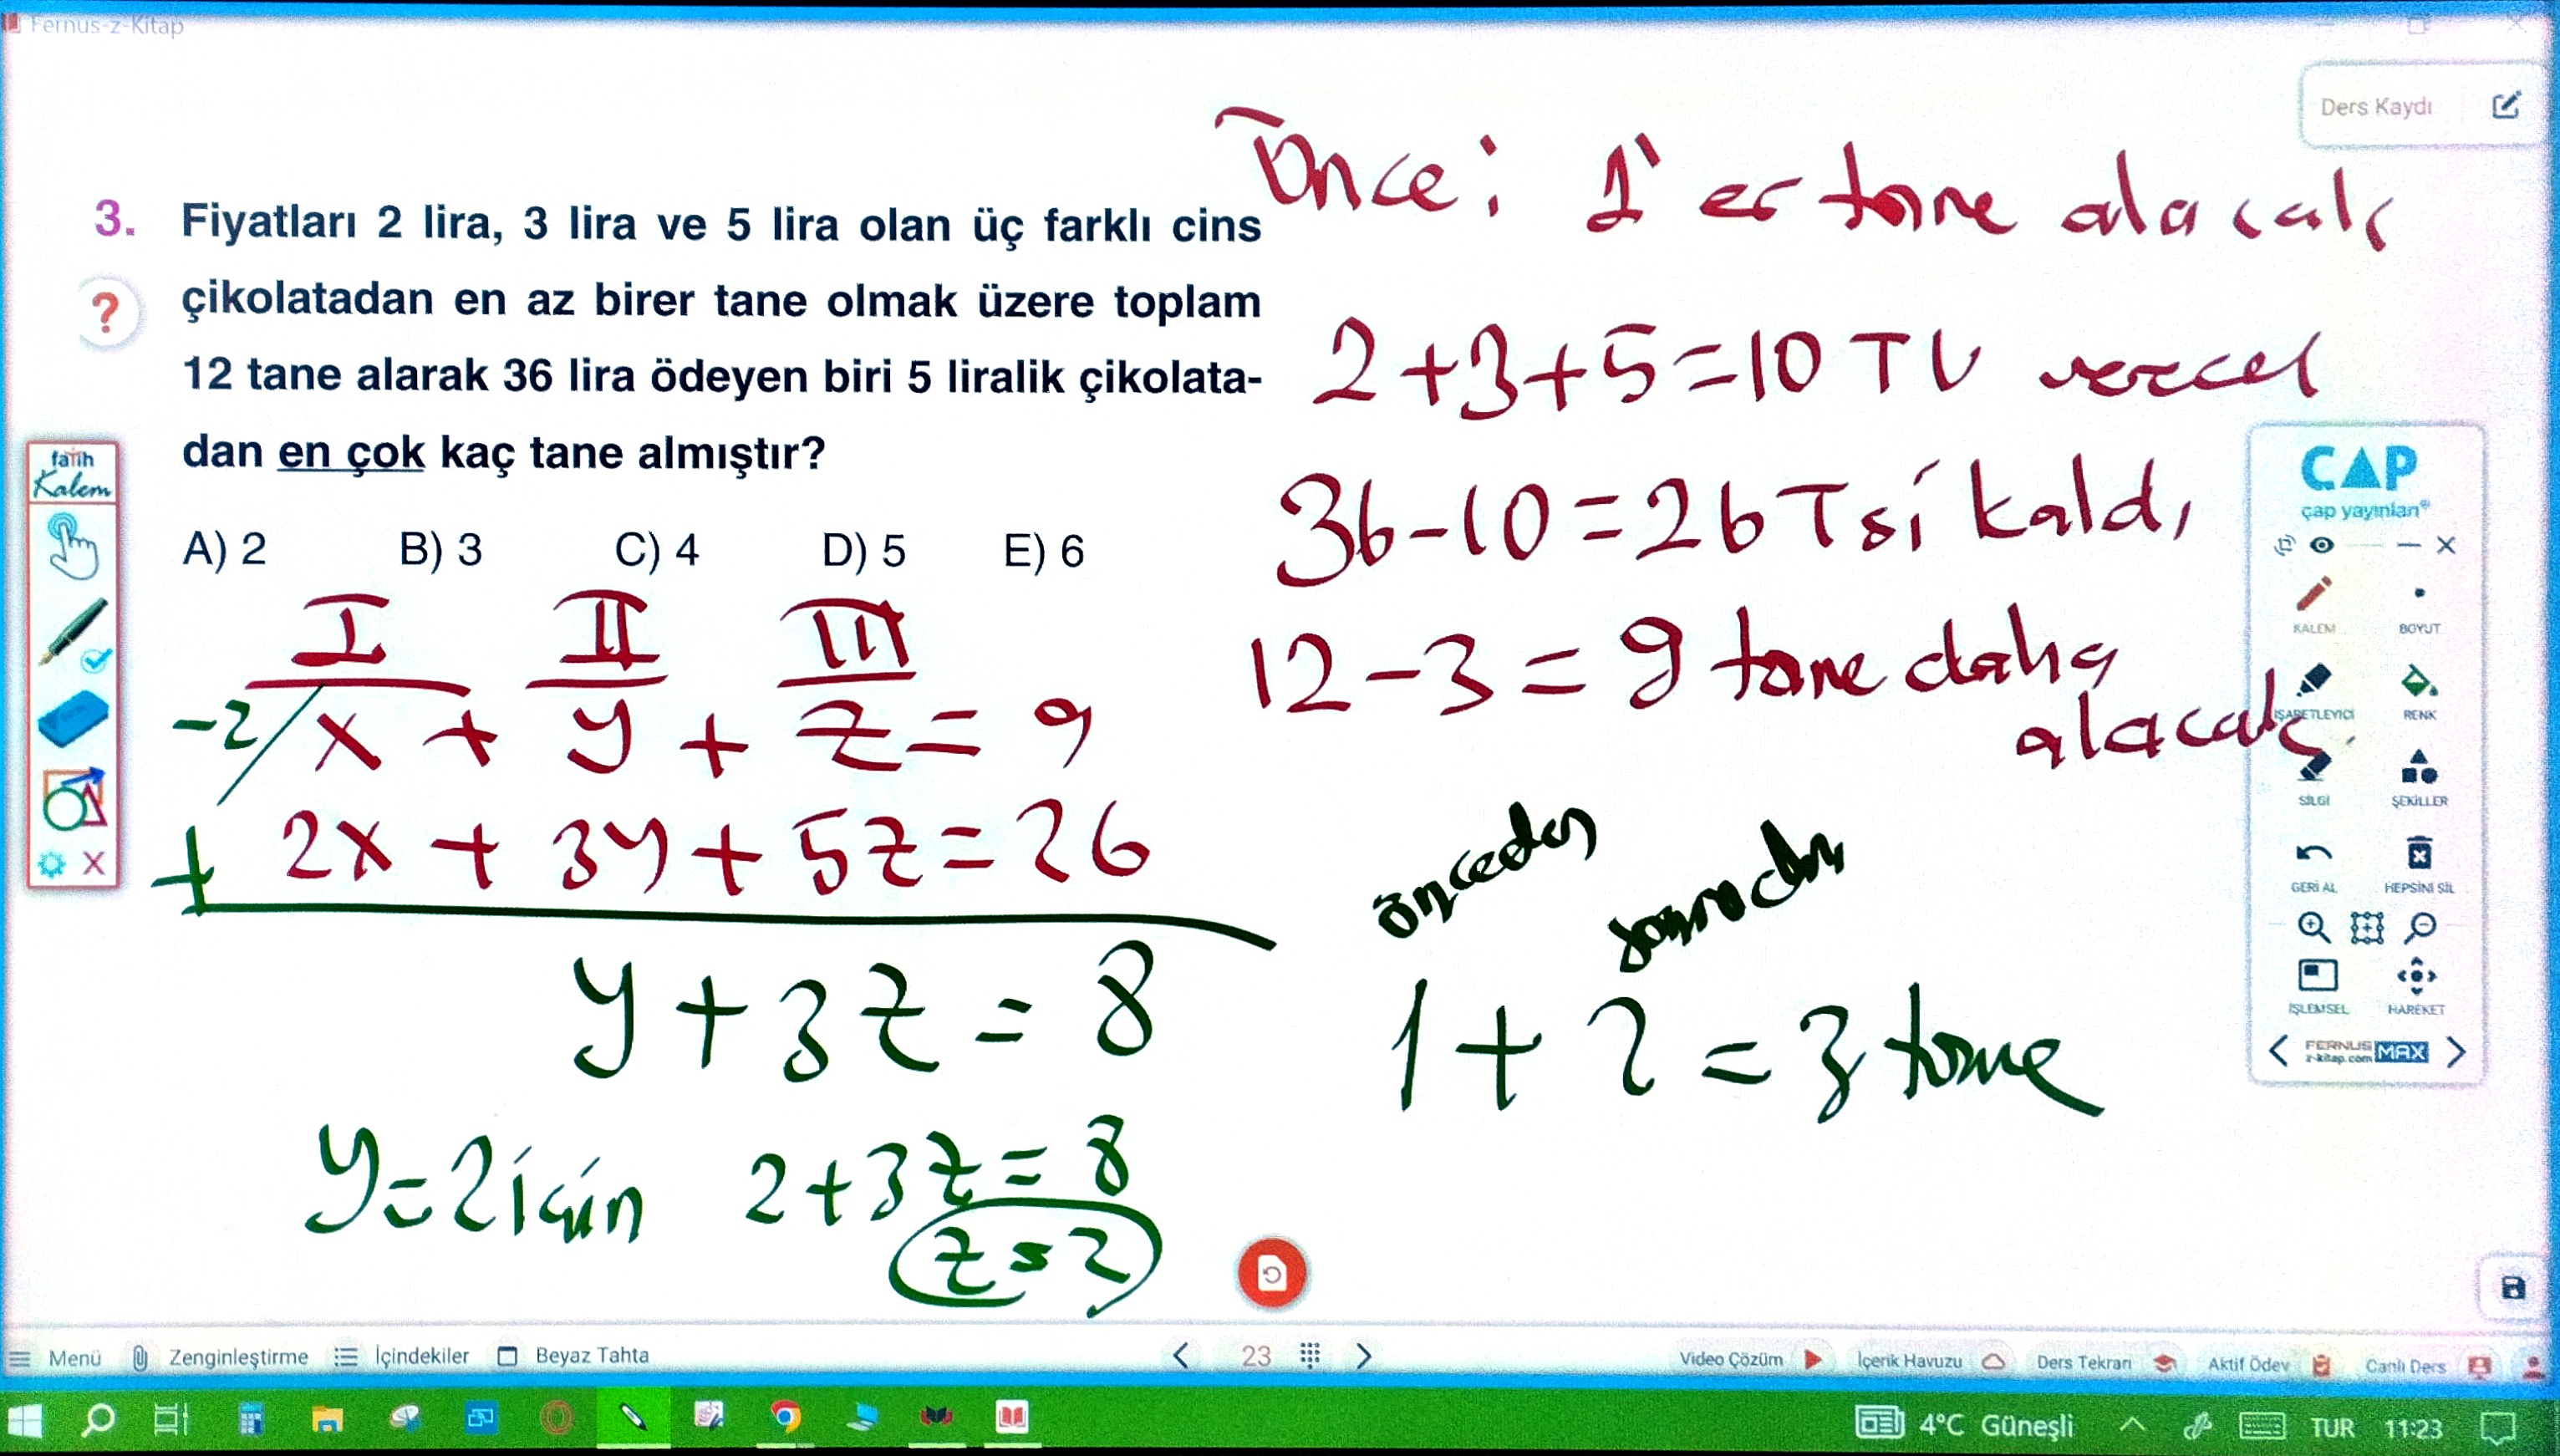 Fernus-z-Kitap
Ders Kaydı
3. Fiyatları 2 lira, 3 lira ve 5 lira olan üç farklı cins
çikolatadan en az birer tane olmak üzere toplam
12 tane alarak 36 lira ödeyen biri 5 liralik çikolata-
dan en çok kaç tane almıştır?
A) 2 B) 3 C) 4 D) 5 E) 6
?
fatih
Kalem
I II III
-2/ x + y + z = 9
+ 2x + 3y + 5z = 26
y + 3z = 8
y=2 için 2+3z=8
z=2
Önce: 1'er tane alacak
2+3+5=10 TL verecek
36-10=26 T si kaldı
12-3=9 tane daha
alacak
önceden sonradan
1+2=3 tane
CAP
çap yayınları
KALEM BOYUT
İŞARETLEYİCİ RENK
SİLGİ ŞEKİLLER
GERİ AL HEPSİNİ SİL
İŞLEMSEL HAREKET
FERNUS
z-kitap.com MAX
Menü Zenginleştirme İçindekiler Beyaz Tahta 23 Video Çözüm İçerik Havuzu Ders Tekrarı Aktif Ödev Canlı Ders
4°C Güneşli TUR 11:23